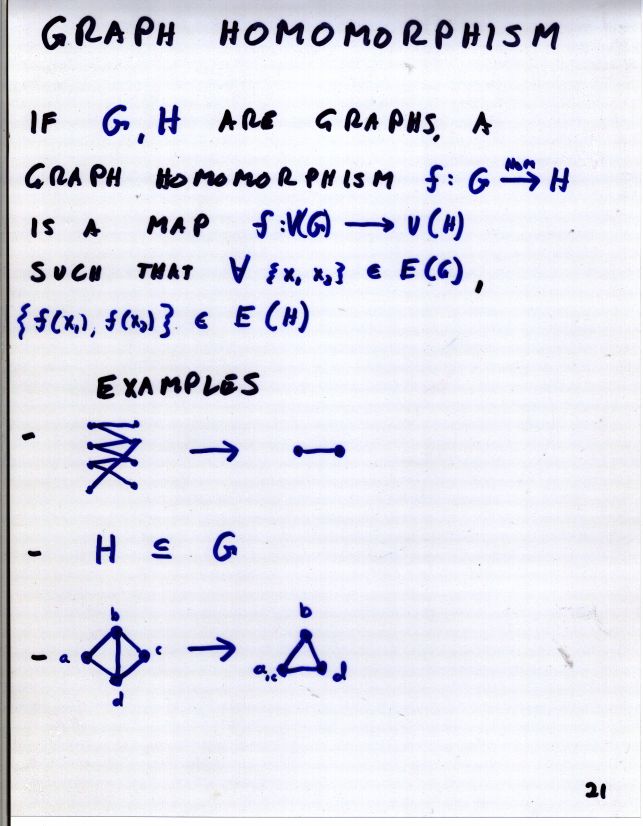 GRAPH HOMOMORPHISM
IF G, H ARE GRAPHS, A
GRAPH HOMOMORPHISM f: G \xrightarrow{HOM} H
IS A MAP f: V(G) → V(H)
SUCH THAT ∀ {x₁ x₂} ∈ E(G),
{f(x₁), f(x₂)} ∈ E(H)
EXAMPLES
- →
- H ⊆ G
- a b c d → b a,c d
21